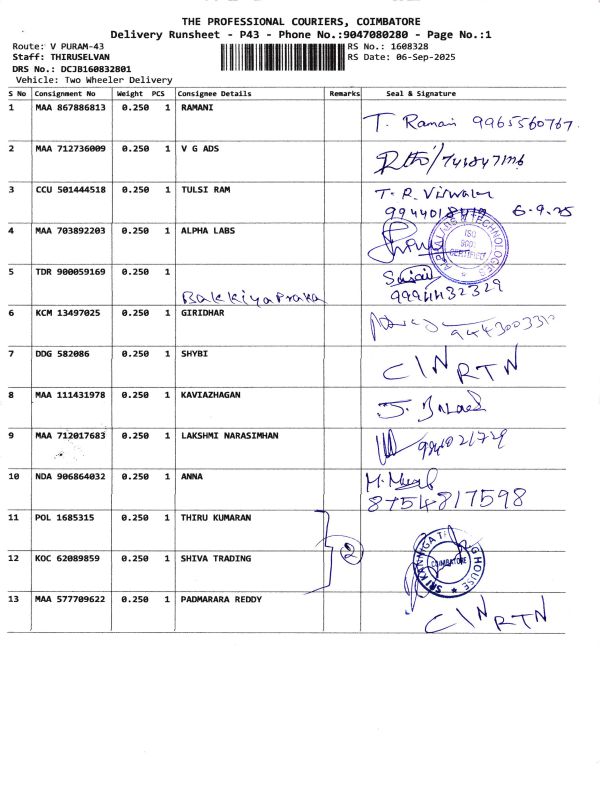 THE PROFESSIONAL COURIERS, COIMBATORE
Delivery Runsheet - P43 - Phone No.:9047080280 - Page No.:1
Route: V PURAM-43 RS No.: 1608328
Staff: THIRUSELVAN RS Date: 06-Sep-2025
DRS No.: DCJB160832801
Vehicle: Two Wheeler Delivery
S No Consignment No Weight PCS Consignee Details Remarks Seal & Signature
1 MAA 867886813 0.250 1 RAMANI
T. Ramani 9965560767.
2 MAA 712736009 0.250 1 V G ADS
3 CCU 501444518 0.250 1 TULSI RAM T. R.
6.9.25
4 MAA 703892203 0.250 1 ALPHA LABS
ISO
CERTIFIED
5 TDR 900059169 0.250 1
9994432329
6 KCM 13497025 0.250 1 GIRIDHAR
7 DDG 582086 0.250 1 SHYBI
C\N RTN
8 MAA 111431978 0.250 1 KAVIAZHAGAN
9 MAA 712017683 0.250 1 LAKSHMI NARASIMHAN
10 NDA 906864032 0.250 1 ANNA
8754817598
11 POL 1685315 0.250 1 THIRU KUMARAN
2
12 KOC 62089859 0.250 1 SHIVA TRADING
COIMBATORE
13 MAA 577709622 0.250 1 PADMARARA REDDY
C\N RTN